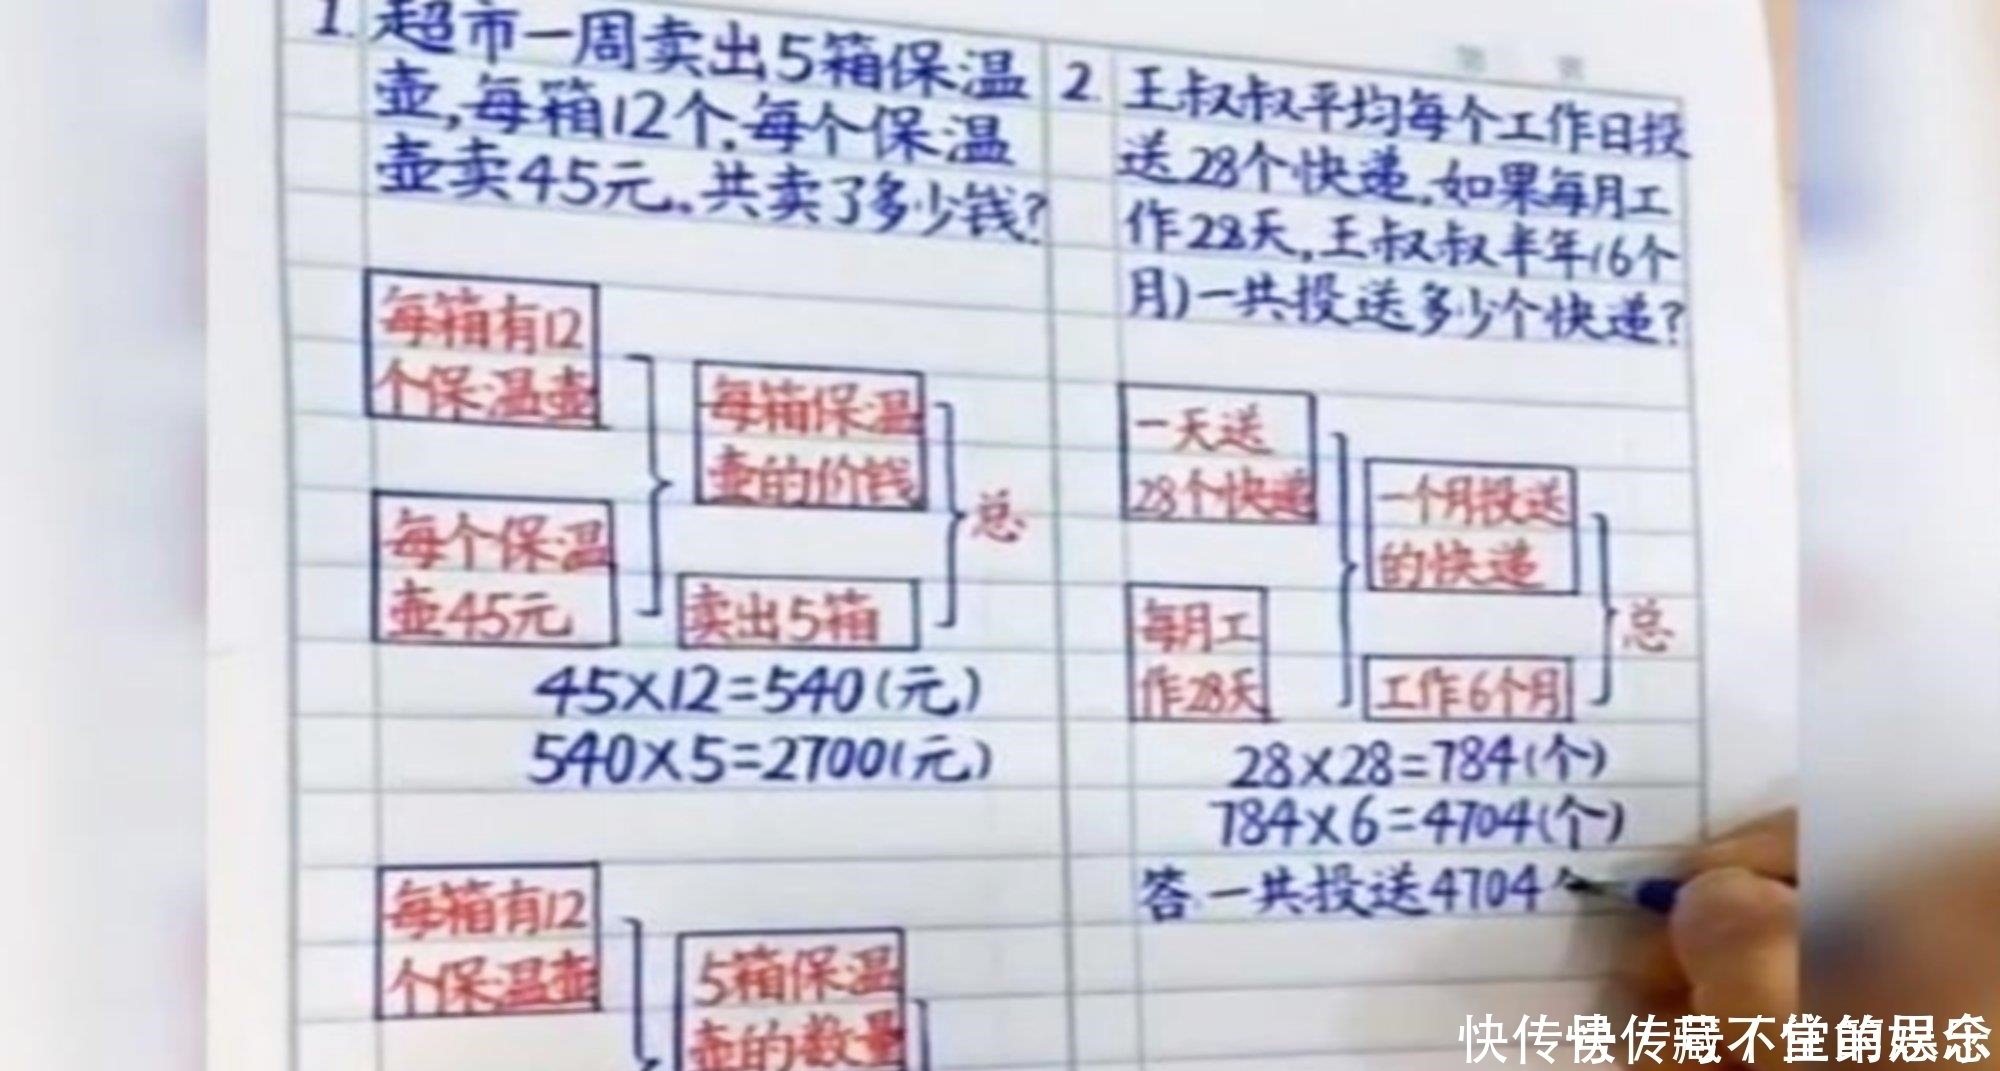 1. 超市一周卖出5箱保温
壶,每箱12个,每个保温
壶卖45元,共卖了多少钱?
每箱有12
个保温壶
每箱保温
壶的价钱
每个保温
壶45元
卖出5箱
总
45×12=540(元)
540×5=2700(元)
每箱有12
个保温壶
5箱保温
壶的数量
2. 王叔叔平均每个工作日投
送28个快递,如果每月工
作28天,王叔叔半年(6个
月)一共投送多少个快递?
一天送
28个快递
一个月投送
的快递
每月工
作28天
工作6个月
总
28×28=784(个)
784×6=4704(个)
答一共投送4704个
快传号